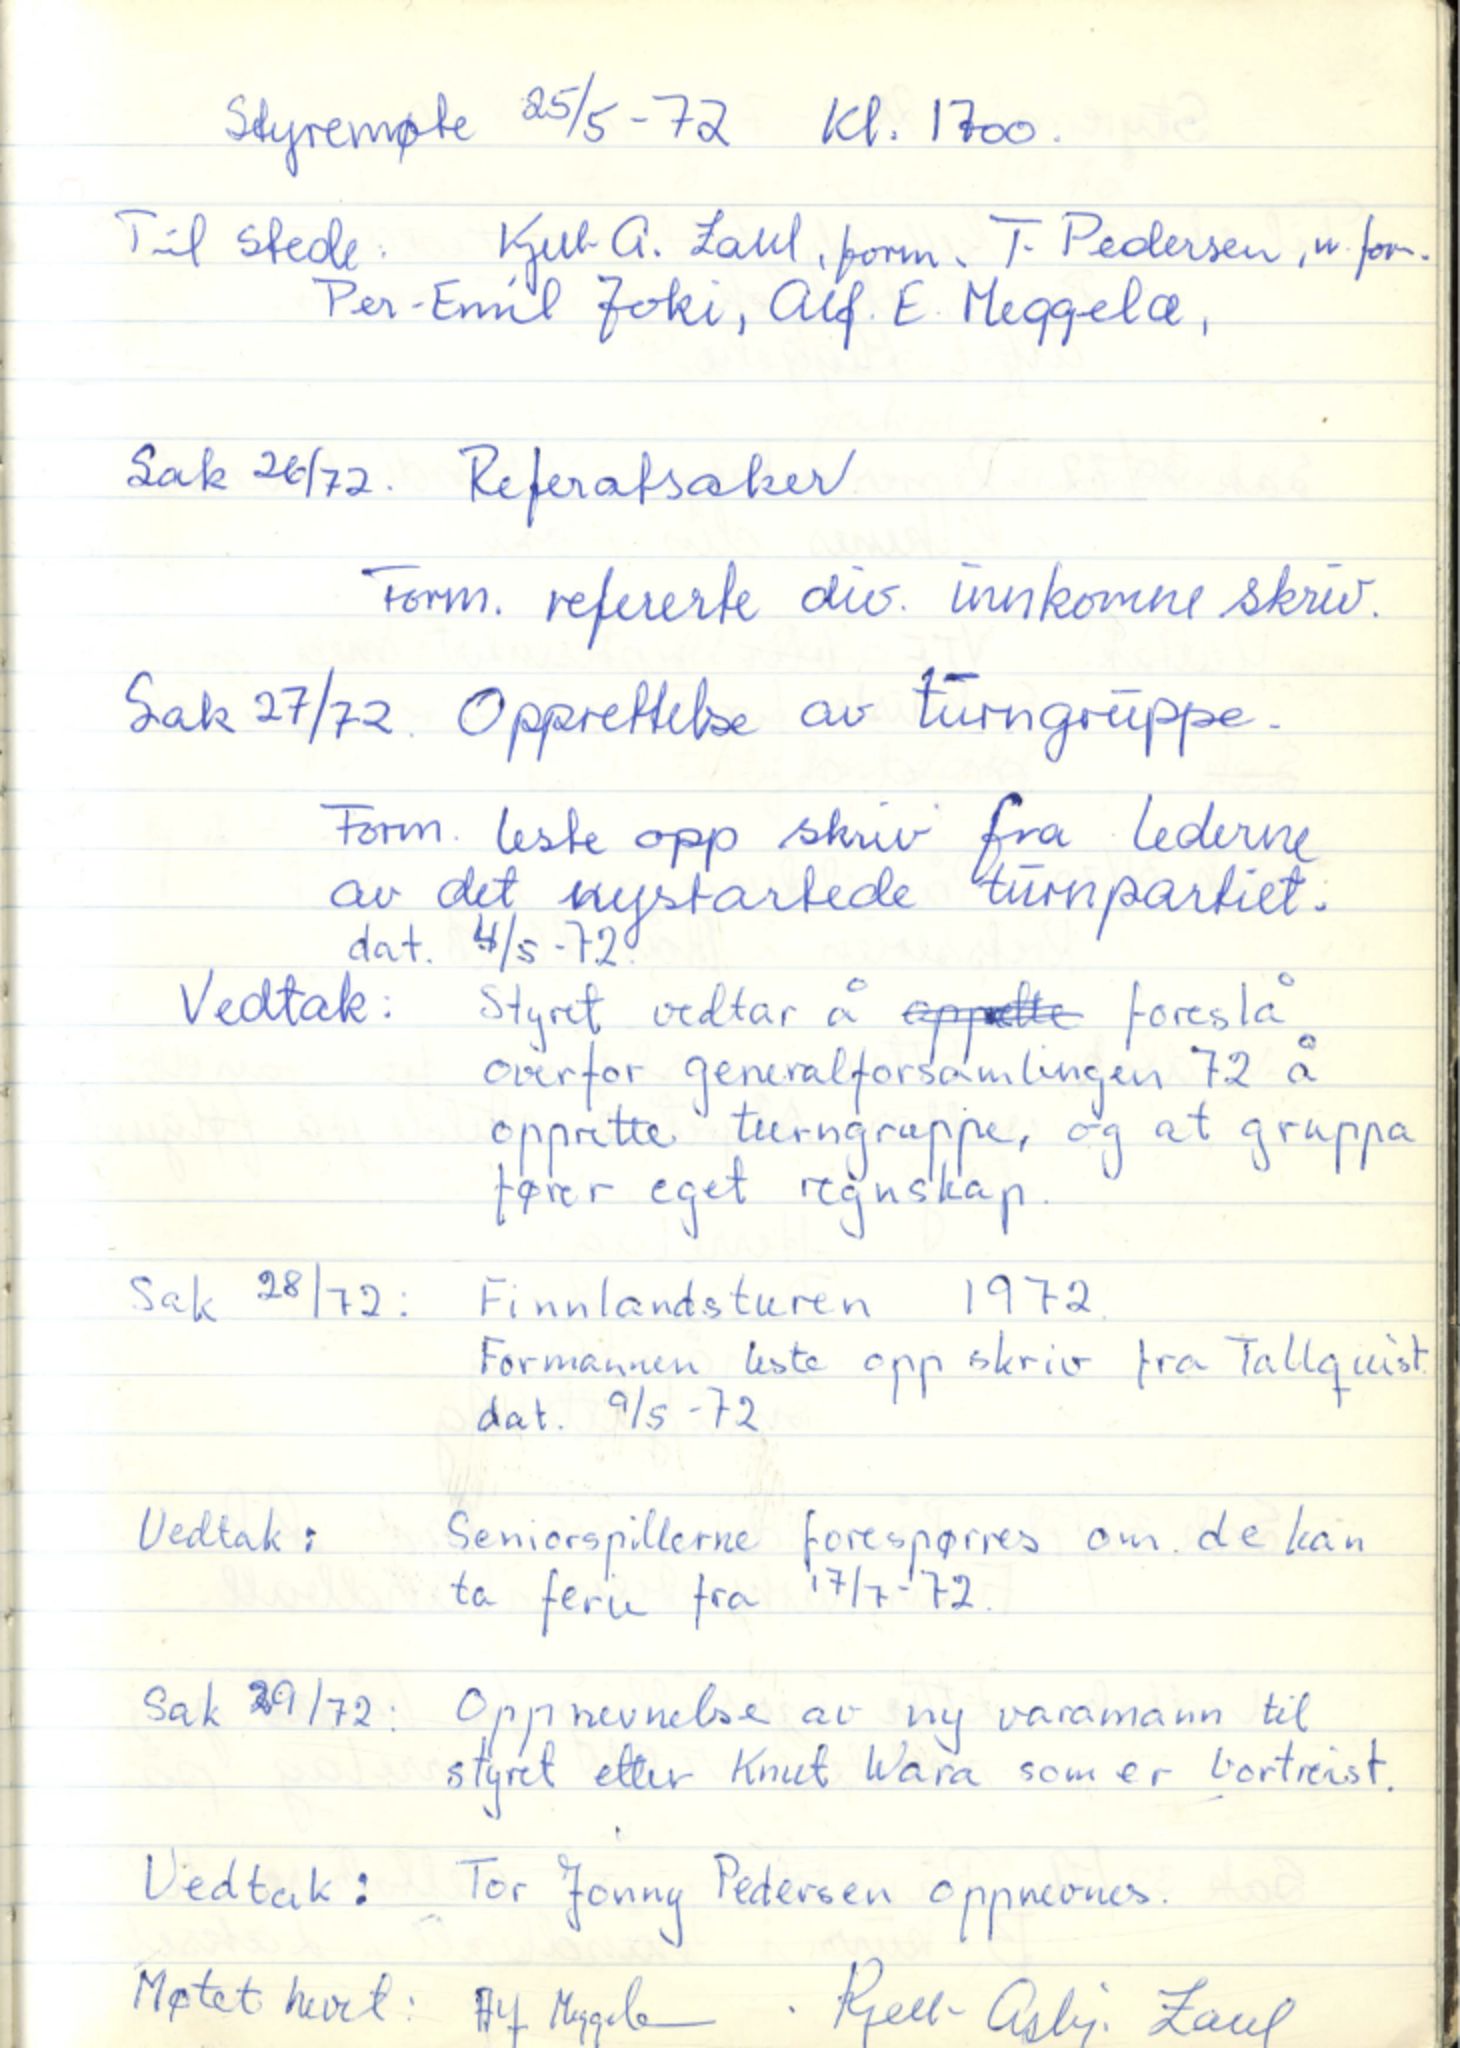 Styremøte 25/5-72 Kl. 1700.
Til stede: Kjell A. Zahl, form. T. Pedersen, v. form.
Per-Emil Joki, Alf. E. Meggelæ,
Sak 26/72. Referatsaker
Form. refererte div. innkomne skriv.
Sak 27/72. Opprettelse av turngruppe.
Form. leste opp skriv fra lederne
av det nystartede turnpartiet.
dat. 4/5-72.
Vedtak: Styret vedtar å opprette foreslå
overfor generalforsamlingen 72 å
opprette turngruppe, og at gruppa
fører eget regnskap.
Sak 28/72: Finnlandsturen 1972.
Formannen leste opp skriv fra Tallquist.
dat. 9/5-72
Vedtak: Seniorspillerne forespørres om de kan
ta ferie fra 17/7-72.
Sak 29/72: Oppnevnelse av ny varamann til
styret etter Knut Wara som er bortreist.
Vedtak: Tor Jonny Pedersen oppnevnes.
Møtet hevet: Alf Meggelæ . Kjell Asbj. Zahl